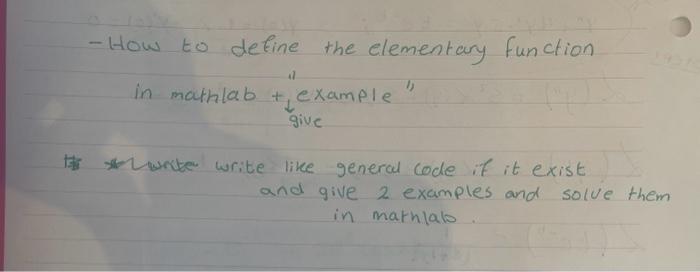 - How to define the elementary function
in mathlab + "example"
give
* write write like general code if it exist
and give 2 examples and solve them
in mathlab.